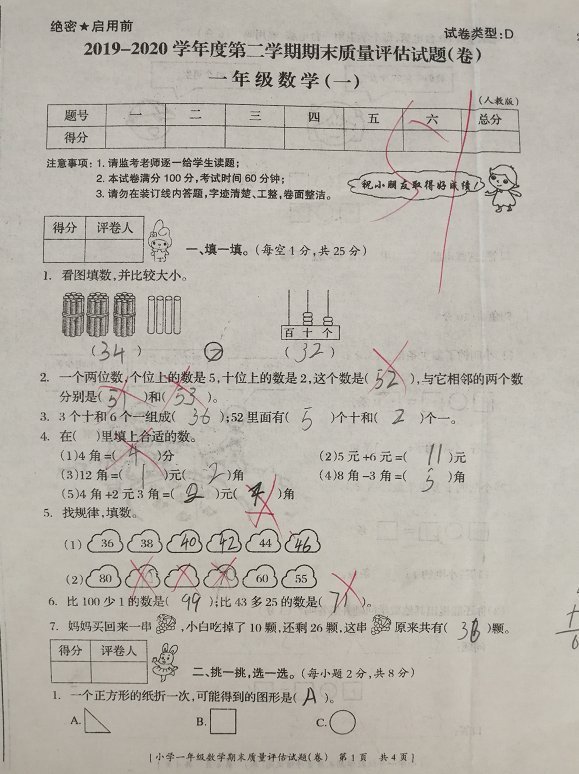 绝密★启用前
试卷类型:D
2019-2020学年度第二学期期末质量评估试题(卷)
一年级数学(一)
(人教版)
题号 一 二 三 四 五 六 总分
得分
注意事项:1.请监考老师逐一给学生读题;
2.本试卷满分100分,考试时间60分钟;
3.请勿在装订线内答题,字迹清楚、工整,卷面整洁。
祝小朋友取得好成绩!
得分 评卷人
一、填一填。(每空1分,共25分)
1. 看图填数,并比较大小。
百 十 个
(34) > (32)
2. 一个两位数,个位上的数是5,十位上的数是2,这个数是(52),与它相邻的两个数
分别是(51)和(53)。
3. 3个十和6个一组成(36);52里面有(5)个十和(2)个一。
4. 在( )里填上合适的数。
(1)4角=(4)分 (2)5元+6元=(11)元
(3)12角=(1)元(2)角 (4)8角-3角=(5)角
(5)4角+2元3角=(2)元(4)角
5. 找规律,填数。
(1) 36 38 40 42 44 46
(2) 80 60 55
6. 比100少1的数是(99);比43多25的数是(71)。
7. 妈妈买回来一串,小白吃掉了10颗,还剩26颗,这串原来共有(36)颗。
得分 评卷人
二、挑一挑,选一选。(每小题2分,共8分)
1. 一个正方形的纸折一次,可能得到的图形是(A)。
A. B. C.
[小学一年级数学期末质量评估试题(卷) 第1页 共4页]